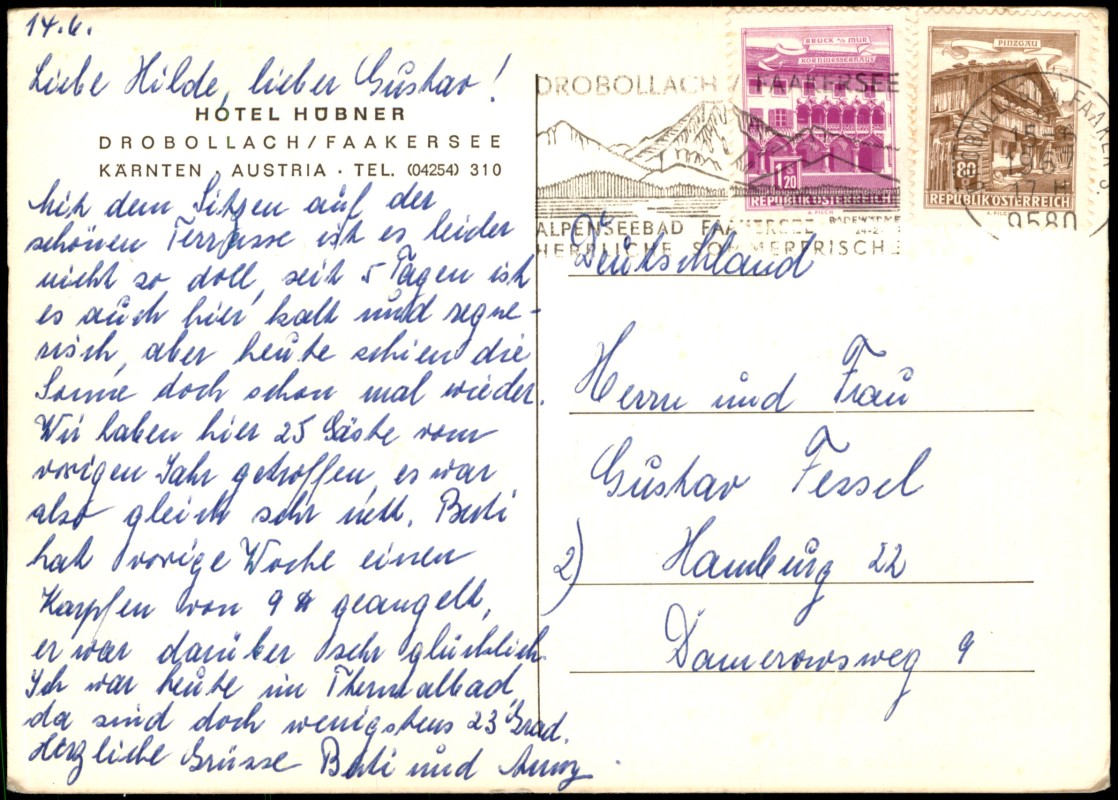 14.6.
Liebe Hilde, lieber Gustav!
HOTEL HÜBNER
DROBOLLACH/FAAKERSEE
KÄRNTEN · AUSTRIA · TEL. (04254) 310
Mit dem Sitzen auf der
schönen Terrasse ist es leider
nicht so doll, seit 5 Tagen ist
es auch hier kalt und regne-
risch, aber heute schien die
Sonne doch schon mal wieder.
Wir haben hier 25 Gäste vom
vorigen Jahr getroffen, es war
also gleich sehr nett. Berti
hat vorige Woche einen
Karpfen von 9 ℔ geangelt,
er war darüber sehr glücklich.
Ich war heute im Thermalbad,
da sind doch wenigstens 23 Grad.
Herzliche Grüsse Berti und
DROBOLLACH / FAAKERSEE
ALPENSEEBAD FAAKERSEE BADEWÄRME
HERRLICHE SOMMERFRISCHE
BRUCK a/d MUR
KORNMESSERHAUS
1 S 20
REPUBLIK ÖSTERREICH
A. PILCH
PINZGAU
80
REPUBLIK ÖSTERREICH
A. PILCH
9580
Deutschland
Herrn und Frau
Gustav Fessel
2) Hamburg 22
Damerowsweg 9